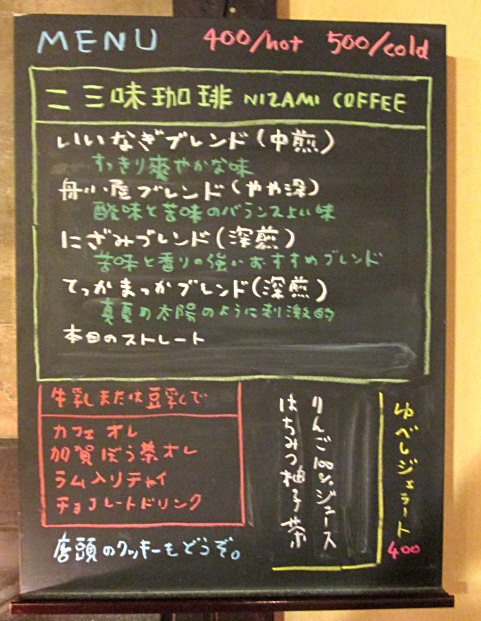 MENU 400/hot 500/cold
二三味珈琲 NIZAMI COFFEE
いいなぎブレンド(中煎)
すっきり爽やかな味
舟小屋ブレンド(やや深)
酸味と苦味のバランスよい味
にざみブレンド(深煎)
苦味と香りの強いおすすめブレンド
てっかまっかブレンド(深煎)
真夏の太陽のように刺激的
本日のストレート
牛乳または豆乳で
カフェオレ
加賀ぼう茶オレ
ラム入りチャイ
チョコレートドリンク
りんご100%ジュース
はちみつ柚子茶
ゆべしジェラート
400
店頭のクッキーもどうぞ。